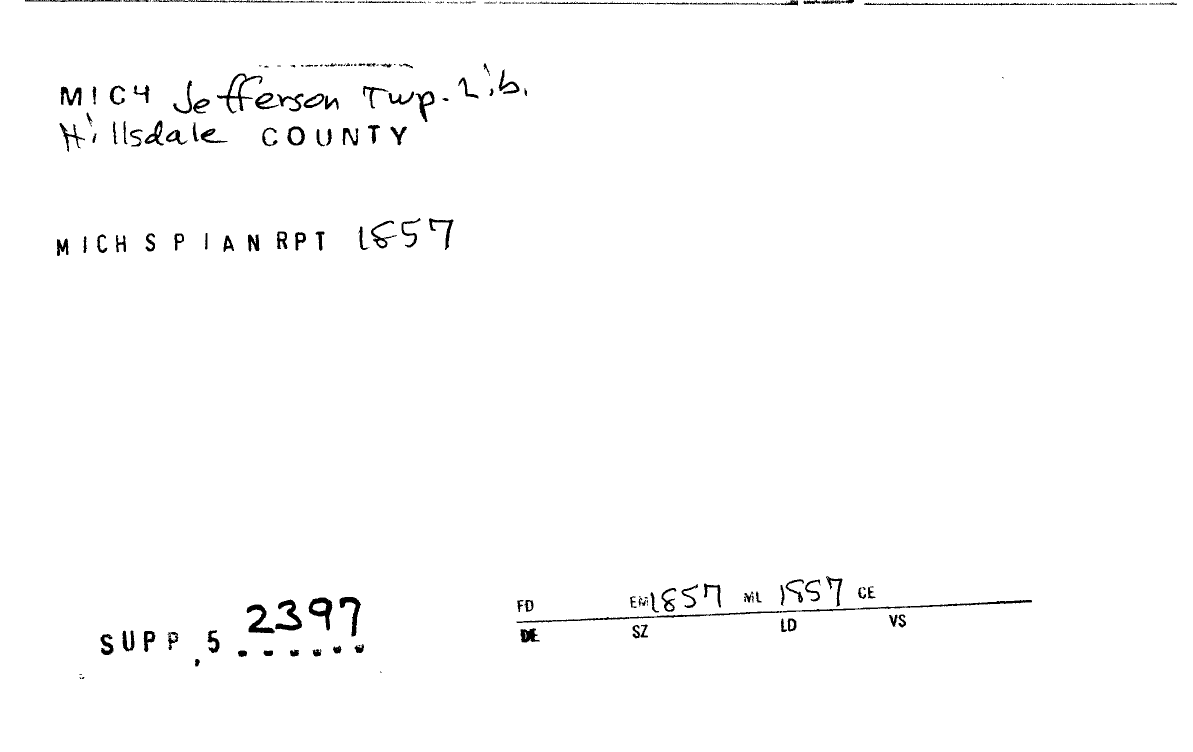 MICH Jefferson Twp. Lib.
Hillsdale COUNTY
MICH S P I AN RPT 1857
SUPP, 5 2397
FD EM 1857 ML 1857 CE
DE SZ LD VS